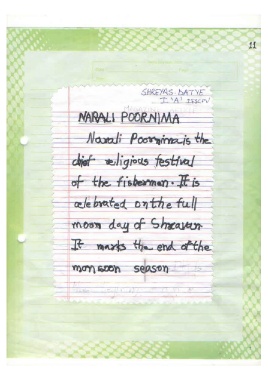 11
SHREYAS DATYE
I 'A'
NARALI POORNIMA
Narali Poornima is the
chief religious festival
of the fisherman. It is
celebrated on the full
moon day of Shravan
It marks the end of the
monsoon season